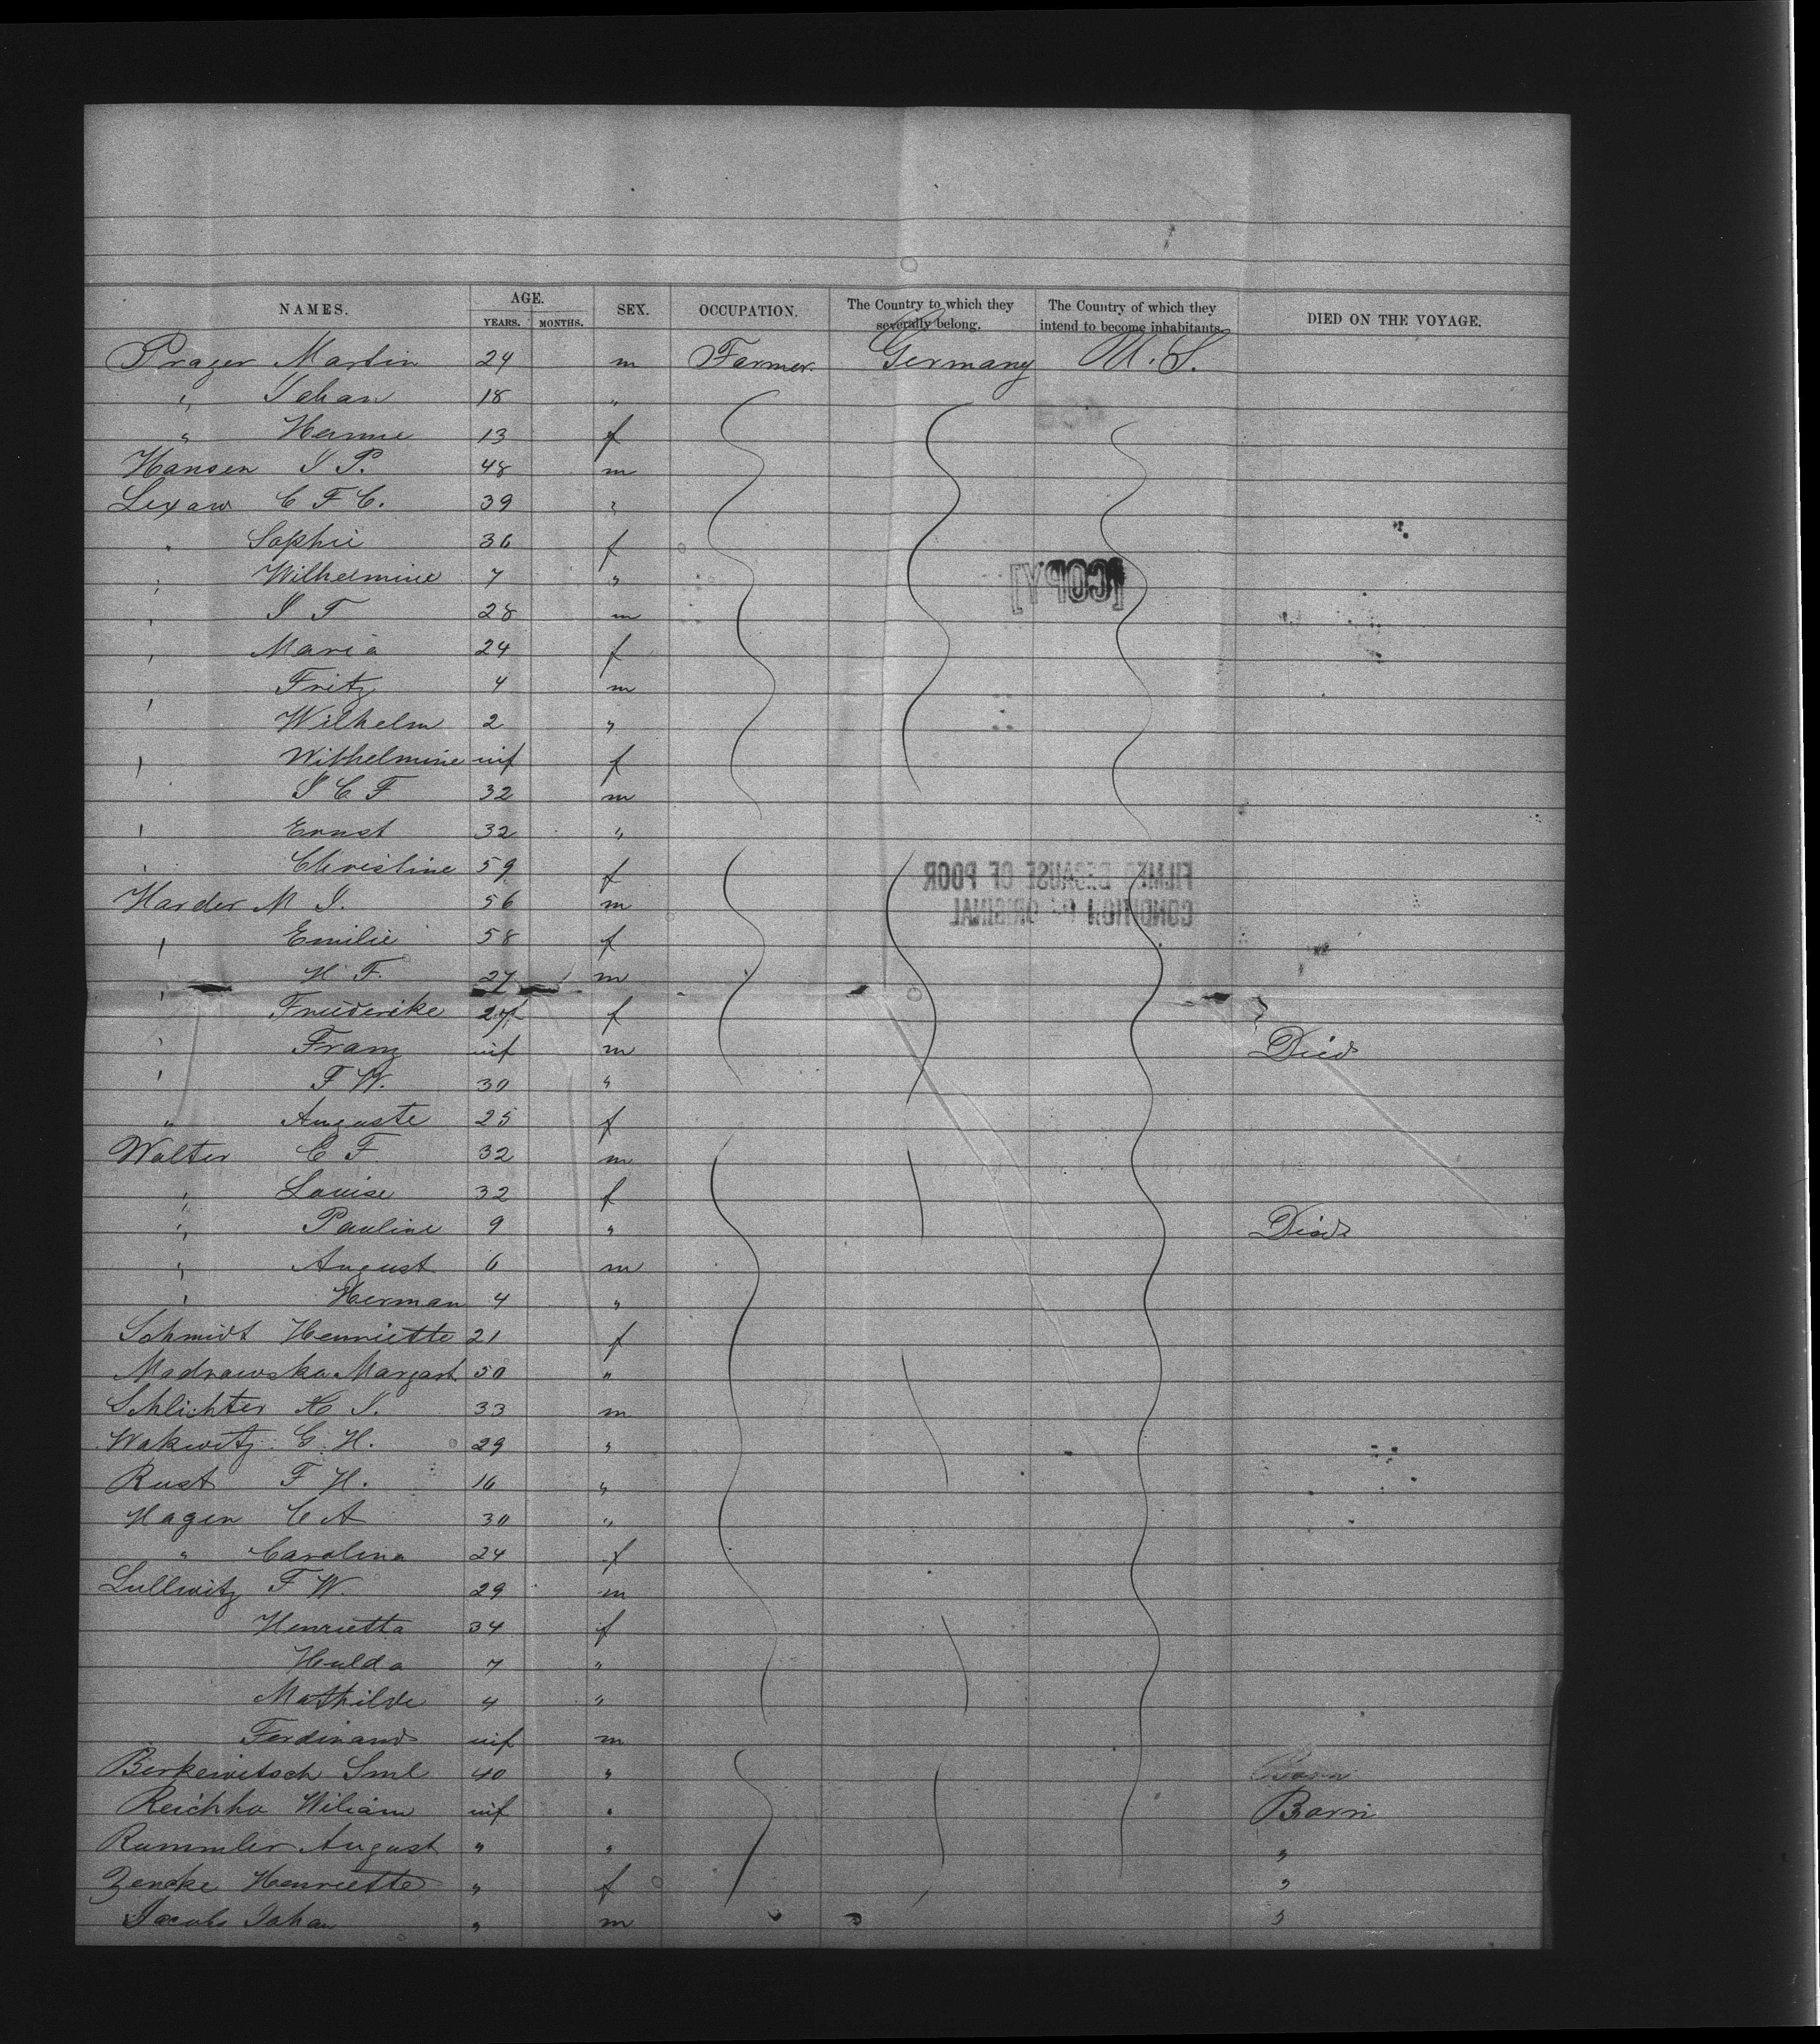 NAMES. AGE. YEARS. MONTHS. SEX. OCCUPATION. The Country to which they severally belong. The Country of which they intend to become inhabitants. DIED ON THE VOYAGE.
Prager Martin 24 m Farmer. Germany U.S.
" Johan 18 "
" Hermie 13 f
Hansen J P. 48 m
Lexaw C F C. 39 "
" Sophie 36 f
" Wilhelmine 7 "
[COPY]
" J F 28 m
" Maria 24 f
" Fritz 4 m
" Wilhelm 2 "
" Withelmine inf f
J C F 32 m
" Ernst 32 "
" Christine 59 f
FILMED BECAUSE OF POOR
CONDITION OF ORIGINAL
Harder M J. 56 m
" Emilie 58 f
" H F. 27 m
" Friederike 24 f
" Franz inf m Died
" F W. 30 "
" Auguste 25 f
Walter C F 32 m
" Louise 32 f
" Pauline 9 " Died
" August 6 m
" Herman 4 "
Schmidt Henriette 21 f
Modrawska Margart 50 "
Schlichter H J. 33 m
Wakwitz G. H. 29 "
Rust F H. 16 "
Hagen C A 30 "
" Carolina 24 f
Lullwitz F W. 29 m
Henrietta 34 f
Hulda 7 "
Mathilde 4 "
Ferdinand inf m
Berkewitsch Sml 40 "
Reichho Wiliam inf " Born
Rummler August " " "
Zencke Henriette " f "
Jacobs Johan " m "